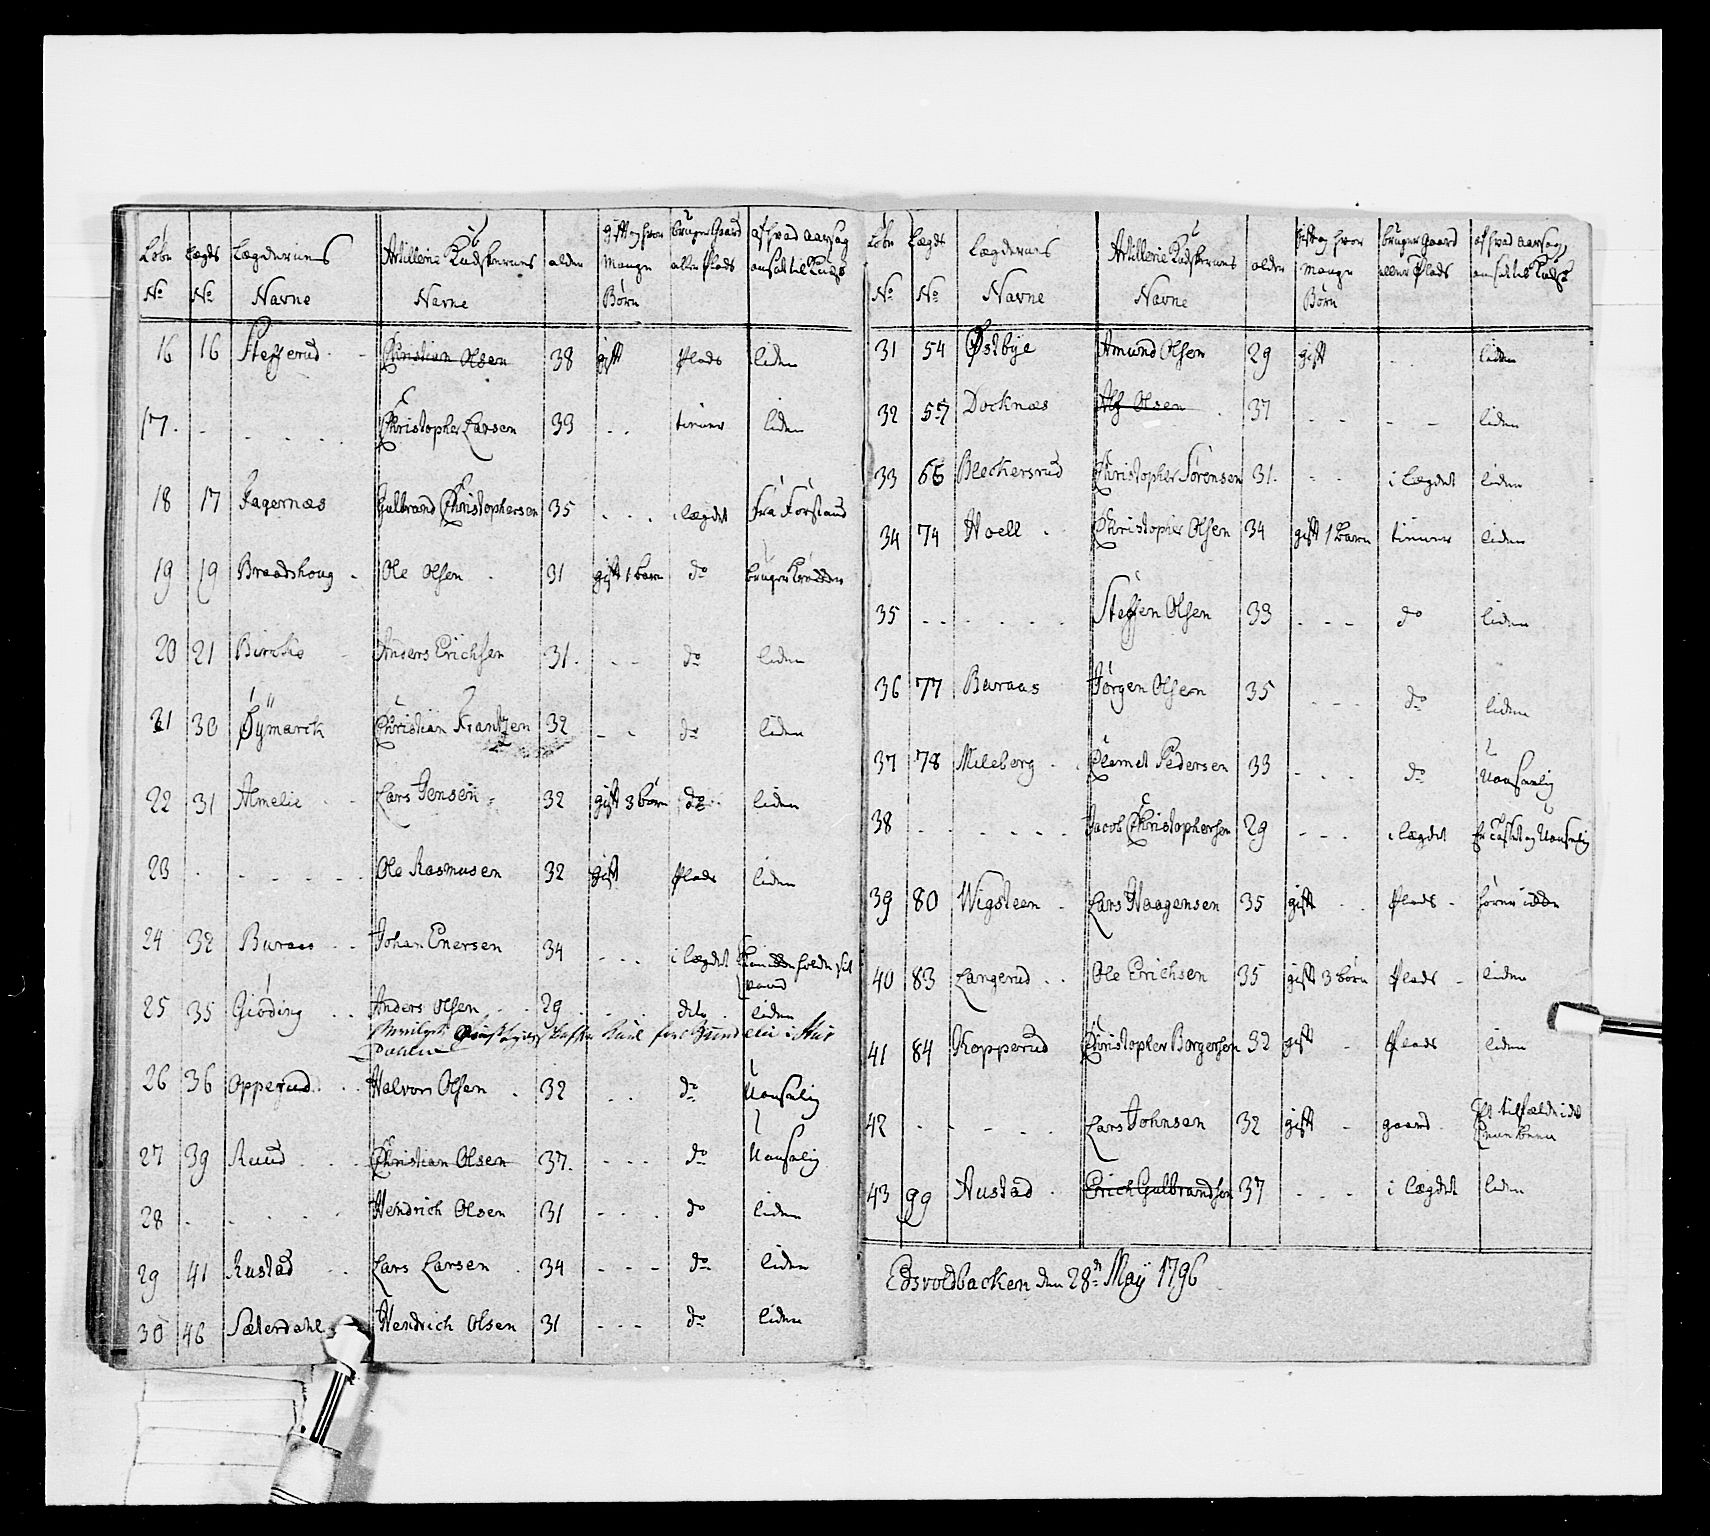 Løbe Lægds Lægdernes Artillerie Kudskernes alder gift og hvor bruger Gaard af hvad aarsag
No No Navne Navne mange Børn eller Plads ansat til Kudsk
16 16 Stefferud Christian Olsen 38 gift Plads liden
17 Christopher Larsen 33 tiener liden
18 17 Fagernæs Gulbrand Christophersen 35 i lægdet Fra Forstand
19 19 Braadshoug Ole Olsen 31 gift 1 barn do bruger
20 21 Anders Erichsen 31 do liden
21 30 Øÿmarck Christian Frantzen 32 do liden
22 31 Almelie Lars Jensen 32 gift 3 børn do liden
23 Ole Rasmusen 32 gift Plads liden
24 32 Buraas Johan Enersen 34 i lægdet
25 35 Giøding Anders Olsen 29 dito liden
26 36 Opperud Halvor Olsen 32 do Uanselig
27 39 Ruud Christian Olsen 37 do Uanselig
28 Hendrich Olsen 31 do liden
29 41 Rustad Lars Larsen 34 do liden
30 46 Sæterdahl Hendrich Olsen 31 do liden
Løbe Lægds Lægdernes Artillerie Kudskernes alder gift og hvor bruger Gaard af hvad aarsag
No No Navne Navne mange Børn eller Plads ansat til Kudsk
31 54 Østbÿe Amund Olsen 29 gift liden
32 57 Docknæs Olsen 37 liden
33 66 Bleckersrud Christopher Sørensen 31 i lægdet liden
34 74 Hoell Christopher Olsen 34 gift 1 barn tiener liden
35 Steffen Olsen 33 do liden
36 77 Buraas Jørgen Olsen 35 do liden
37 78 Mileberg Clemet Pedersen 33 do Uanselig
38 Jacob Christophersen 29 i lægdet og Uanselig
39 80 Wigsteen Lars Haagensen 35 gift Plads hører
40 83 Langerud Ole Erichsen 35 gift 3 børn Plads liden
41 84 Kopperud Christopher Borgersen 32 gift Plads liden
42 Lars Johnsen 32 gift gaard
43 99 Austad Erich Gulbrandsen 37 i lægdet liden
Edsvoldbacken den 28de Maÿ 1796